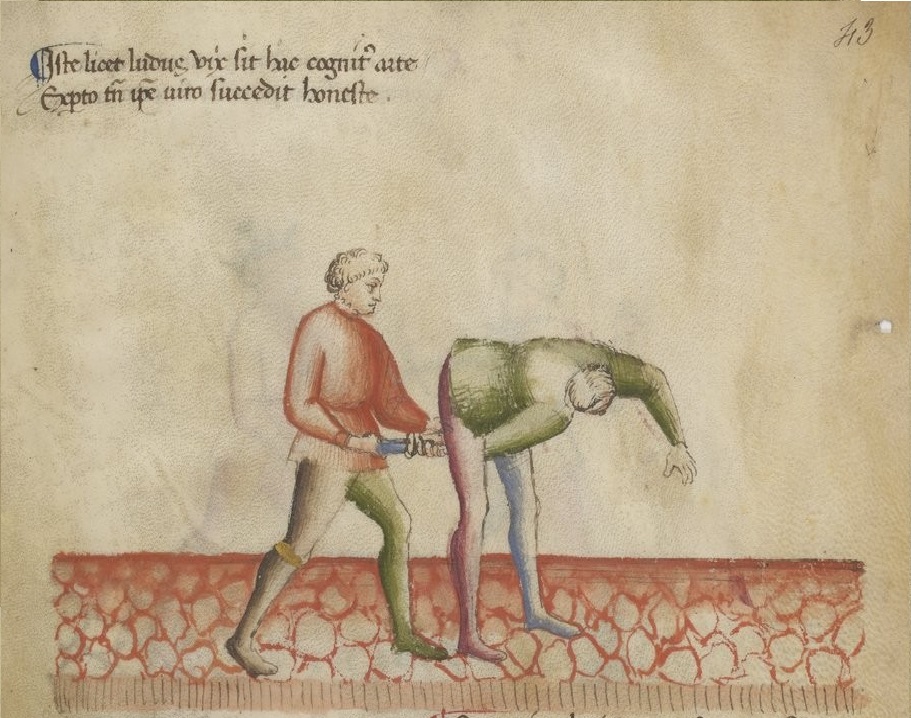 43
Iste licet ludus, vix sit hac cognitꝰ arte
Exꝑto tn̄ ip̄e viro succedit honeste .